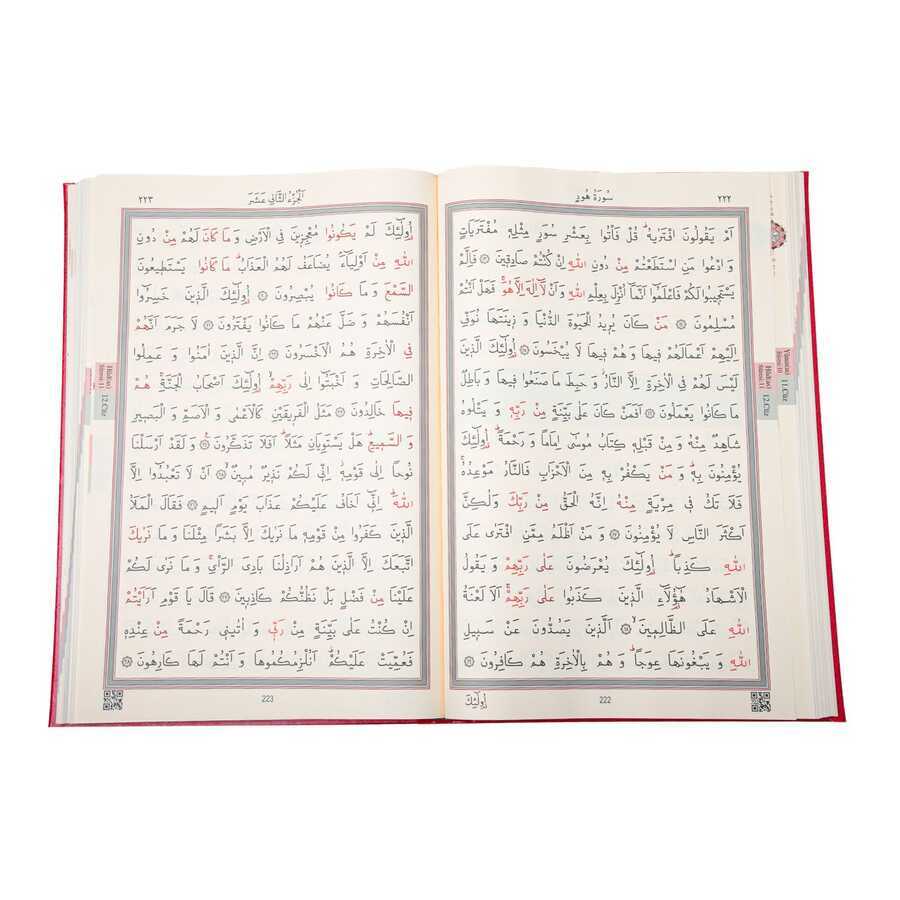 ٢٢٢
سُورَةُ هُودٍ
اَمْ يَقُولُونَ افْتَرٰيهُ قُلْ فَأْتُوا بِعَشْرِ سُوَرٍ مِثْلِه۪ مُفْتَرَيَاتٍ
وَ ادْعُوا مَنِ اسْتَطَعْتُمْ مِنْ دُونِ اللّٰهِ اِنْ كُنْتُمْ صَادِق۪ينَ ﴿١٣﴾ فَاِلَّمْ
يَسْتَج۪يبُوا لَكُمْ فَاعْلَمُٓوا اَنَّمَٓا اُنْزِلَ بِعِلْمِ اللّٰهِ وَ اَنْ لَٓا اِلٰهَ اِلَّا هُوَۚ فَهَلْ اَنْتُمْ
مُسْلِمُونَ ﴿١٤﴾ مَنْ كَانَ يُر۪يدُ الْحَيٰوةَ الدُّنْيَا وَ ز۪ينَتَهَا نُوَفِّ
اِلَيْهِمْ اَعْمَالَهُمْ ف۪يهَا وَ هُمْ ف۪يهَا لَا يُبْخَسُونَ ﴿١٥﴾ اُو۬لٰٓئِكَ الَّذ۪ينَ
لَيْسَ لَهُمْ فِي الْاٰخِرَةِ اِلَّا النَّارُۘ وَ حَبِطَ مَا صَنَعُوا ف۪يهَا وَ بَاطِلٌ
مَا كَانُوا يَعْمَلُونَ ﴿١٦﴾ اَفَمَنْ كَانَ عَلٰى بَيِّنَةٍ مِنْ رَبِّه۪ وَ يَتْلُوهُ
شَاهِدٌ مِنْهُ وَ مِنْ قَبْلِه۪ كِتَابُ مُوسٰٓى اِمَامًا وَ رَحْمَةًۜ اُو۬لٰٓئِكَ
يُؤْمِنُونَ بِه۪ۜ وَ مَنْ يَكْفُرْ بِه۪ مِنَ الْاَحْزَابِ فَالنَّارُ مَوْعِدُهُۚ
فَلَا تَكُ ف۪ي مِرْيَةٍ مِنْهُ اِنَّهُ الْحَقُّ مِنْ رَبِّكَ وَلٰكِنَّ
اَكْثَرَ النَّاسِ لَا يُؤْمِنُونَ ﴿١٧﴾ وَ مَنْ اَظْلَمُ مِمَّنِ افْتَرٰى عَلَى
اللّٰهِ كَذِبًاۜ اُو۬لٰٓئِكَ يُعْرَضُونَ عَلٰى رَبِّهِمْ وَ يَقُولُ
الْاَشْهَادُ هٰٓؤُ۬لَٓاءِ الَّذ۪ينَ كَذَبُوا عَلٰى رَبِّهِمْۚ اَلَا لَعْنَةُ
اللّٰهِ عَلَى الظَّالِم۪ينَ ﴿١٨﴾ اَلَّذ۪ينَ يَصُدُّونَ عَنْ سَب۪يلِ
اللّٰهِ وَ يَبْغُونَهَا عِوَجًاۜ وَ هُمْ بِالْاٰخِرَةِ هُمْ كَافِرُونَ ﴿١٩﴾
222
اُو۬لٰٓئِكَ
اَلْجُزْءُ الثَّانِي عَشَرَ
٢٢٣
اُو۬لٰٓئِكَ لَمْ يَكُونُوا مُعْجِز۪ينَ فِي الْاَرْضِ وَ مَا كَانَ لَهُمْ مِنْ دُونِ
اللّٰهِ مِنْ اَوْلِيَٓاءَۘ يُضَاعَفُ لَهُمُ الْعَذَابُۜ مَا كَانُوا يَسْتَط۪يعُونَ
السَّمْعَ وَ مَا كَانُوا يُبْصِرُونَ ﴿٢٠﴾ اُو۬لٰٓئِكَ الَّذ۪ينَ خَسِرُٓوا
اَنْفُسَهُمْ وَ ضَلَّ عَنْهُمْ مَا كَانُوا يَفْتَرُونَ ﴿٢١﴾ لَا جَرَمَ اَنَّهُمْ
فِي الْاٰخِرَةِ هُمُ الْاَخْسَرُونَ ﴿٢٢﴾ اِنَّ الَّذ۪ينَ اٰمَنُوا وَ عَمِلُوا
الصَّالِحَاتِ وَ اَخْبَتُٓوا اِلٰى رَبِّهِمْۙ اُو۬لٰٓئِكَ اَصْحَابُ الْجَنَّةِۚ هُمْ
ف۪يهَا خَالِدُونَ ﴿٢٣﴾ مَثَلُ الْفَر۪يقَيْنِ كَالْاَعْمٰى وَ الْاَصَمِّ وَ الْبَص۪يرِ
وَ السَّم۪يعِۜ هَلْ يَسْتَوِيَانِ مَثَلًاۜ اَفَلَا تَذَكَّرُونَ ﴿٢٤﴾ وَ لَقَدْ اَرْسَلْنَا
نُوحًا اِلٰى قَوْمِه۪ۘ اِنّ۪ي لَكُمْ نَذ۪يرٌ مُب۪ينٌۙ ﴿٢٥﴾ اَنْ لَا تَعْبُدُٓوا اِلَّا
اللّٰهَۜ اِنّ۪ٓي اَخَافُ عَلَيْكُمْ عَذَابَ يَوْمٍ اَل۪يمٍ ﴿٢٦﴾ فَقَالَ الْمَلَاُ
الَّذ۪ينَ كَفَرُوا مِنْ قَوْمِه۪ مَا نَرٰيكَ اِلَّا بَشَرًا مِثْلَنَا وَ مَا نَرٰيكَ
اتَّبَعَكَ اِلَّا الَّذ۪ينَ هُمْ اَرَاذِلُنَا بَادِيَ الرَّأْيِۚ وَ مَا نَرٰى لَكُمْ
عَلَيْنَا مِنْ فَضْلٍ بَلْ نَظُنُّكُمْ كَاذِب۪ينَ ﴿٢٧﴾ قَالَ يَا قَوْمِ اَرَاَيْتُمْ
اِنْ كُنْتُ عَلٰى بَيِّنَةٍ مِنْ رَبّ۪ي وَ اٰتٰين۪ي رَحْمَةً مِنْ عِنْدِه۪
فَعُمِّيَتْ عَلَيْكُمْۜ اَنُلْزِمُكُمُوهَا وَ اَنْتُمْ لَهَا كَارِهُونَ ﴿٢٨﴾
223
11.Cüz
12.Cüz
Hûd(as)
Sûresi:11
12.Cüz